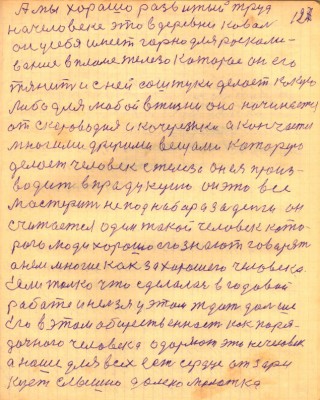 А мы хорошо развитий труд 122
на человене это в деревни ковал
он у себя имеет горно для роскали-
вание в пламе телезо которое он его
тянит и с ней со штуки делает
либо для любой в жизни она начинается
от скероводня и кочережка а кончается
многими другими вещами которую
делает человек с телеза он ея произ-
водит в прадукцию он это все
мастерит не под набара за денги он
считается один такой человек кото-
рого люди хорошо его знают говарят
а нем многие как за хорошего человека.
Если толко что сделалаз в годовой
работе и нелзя у этом ждат долше
его в этом общественнаст как поря-
дочного человека одоряют это не человек
а наше для всех ест сердце от зари
кует слышно далеко молотка